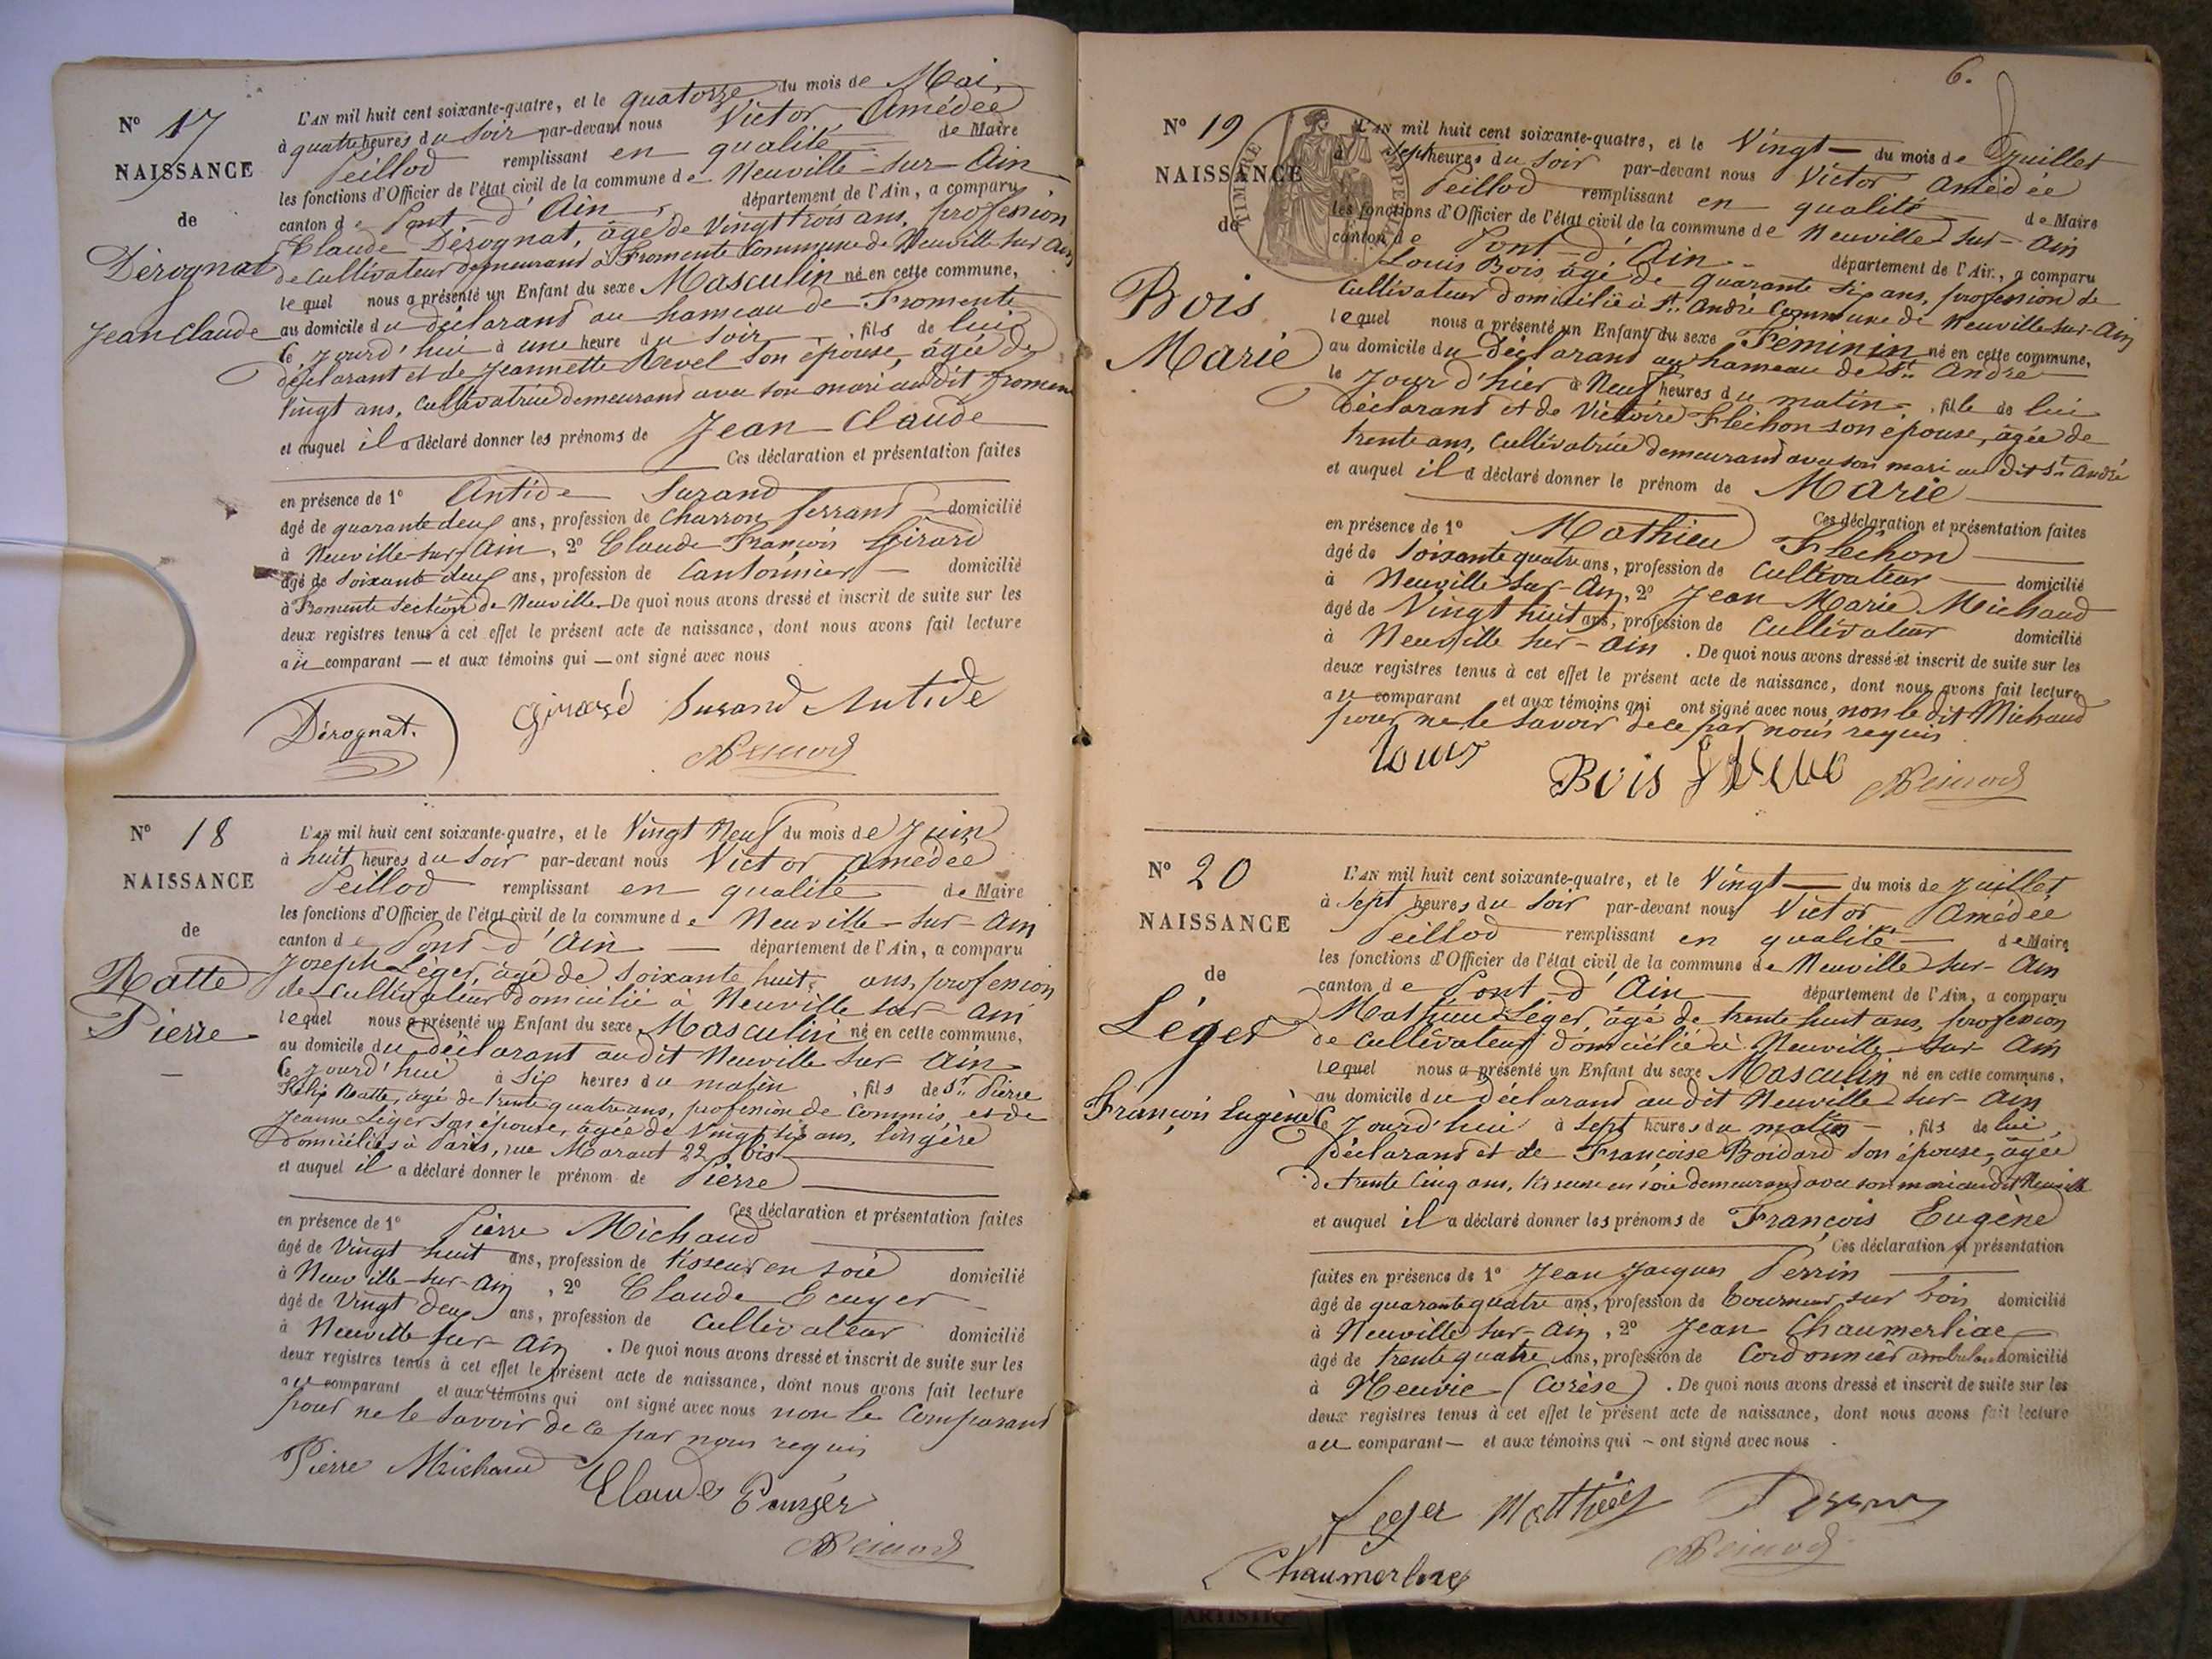 N° 17
NAISSANCE
de
Dérognat
Jean Claude
L'AN mil huit cent soixante-quatre, et le quatorze du mois de Mai,
à quatre heures du soir par-devant nous Victor Amédée
Peillod remplissant en qualité de Maire
les fonctions d'Officier de l'état civil de la commune de Neuville-sur-Ain
canton de Pont-d'Ain, département de l'Ain, a comparu
Claude Dérognat, âgé de Vingt trois ans, profession
de Cultivateur demeurant à Fromente Commune de Neuville sur Ain
lequel nous a présenté un Enfant du sexe Masculin né en cette commune,
au domicile du déclarant au hameau de Fromente
Ce jourd'hui à une heure du soir, fils de lui
déclarant et de Jeannette Revel son épouse, âgée de
Vingt ans, Cultivatrice demeurant avec son mari audit Fromen
et auquel il a déclaré donner les prénoms de Jean-Claude
Ces déclaration et présentation faites
en présence de 1° Antide Surand
âgé de quarante deux ans, profession de Charron ferrant domicilié
à Neuville-sur-Ain, 2° Claude François Girard
âgé de Soixante deux ans, profession de Cantonnier domicilié
à Fromente Section de Neuville. De quoi nous avons dressé et inscrit de suite sur les
deux registres tenus à cet effet le présent acte de naissance, dont nous avons fait lecture
au comparant — et aux témoins qui — ont signé avec nous
Dérognat. Girard Surand Antide
Peillod
N° 18
NAISSANCE
de
Ratte
Pierre
L'AN mil huit cent soixante-quatre, et le Vingt Neuf du mois de Juin
à huit heures du Soir par-devant nous Victor Amédée
Peillod remplissant en qualité de Maire
les fonctions d'Officier de l'état civil de la commune de Neuville-sur-Ain
canton de Pont-d'Ain — département de l'Ain, a comparu
Joseph Léger, âgé de Soixante huit ans, profession
de Cultivateur domicilié à Neuville sur Ain
lequel nous a présenté un Enfant du sexe Masculin né en cette commune,
au domicile du déclarant audit Neuville sur Ain
Ce jourd'hui à Six heures du matin, fils de Sr Pierre
Ratte, âgé de trente quatre ans, profession de Commis, et de
Jeanne Léger son épouse, âgée de Vingt six ans, lingère
Domiciliés à Paris, rue 22 bis
et auquel il a déclaré donner le prénom de Pierre
Ces déclaration et présentation faites
en présence de 1° Pierre Michaud
âgé de Vingt huit ans, profession de tisseur en soie domicilié
à Neuville-sur-Ain, 2° Claude Ecuyer
âgé de Vingt deux ans, profession de Cultivateur domicilié
à Neuville sur-Ain. De quoi nous avons dressé et inscrit de suite sur les
deux registres tenus à cet effet le présent acte de naissance, dont nous avons fait lecture
au comparant et aux témoins qui ont signé avec nous non le Comparant
pour ne le savoir de ce par nous requis
Pierre Michaud Claude
Peillod
6.
N° 19
NAISSANCE
de
Bois
Marie
TIMBRE IMPERIAL
L'AN mil huit cent soixante-quatre, et le Vingt — du mois de Juillet
à Sept heures du Soir par-devant nous Victor Amédée
Peillod remplissant en qualité de Maire
les fonctions d'Officier de l'état civil de la commune de Neuville sur-Ain
canton de Pont-d'Ain département de l'Ain, a comparu
Louis Bois âgé de quarante six ans, profession de
Cultivateur domicilié à St. André Commune de Neuville sur-Ain
lequel nous a présenté un Enfant du sexe Féminin né en cette commune,
au domicile du Déclarant au hameau de St. André
le jour d'hier à Neuf heures du matin, fille de lui
déclarant et de Victoire Fléchon son épouse, âgée de
trente ans, Cultivatrice demeurant avec son mari audit St. André
et auquel il a déclaré donner le prénom de Marie
Ces déclaration et présentation faites
en présence de 1° Mathieu Fléchon
âgé de Soixante quatre ans, profession de Cultivateur domicilié
à Neuville sur-Ain, 2° Jean Marie Michaud
âgé de Vingt huit ans, profession de Cultivateur domicilié
à Neuville sur-Ain. De quoi nous avons dressé et inscrit de suite sur les
deux registres tenus à cet effet le présent acte de naissance, dont nous avons fait lecture
au comparant et aux témoins qui ont signé avec nous, non le dit Michaud
pour ne le savoir de ce par nous requis
Louis Bois Peillod
N° 20
NAISSANCE
de
Léger
François Eugène
L'AN mil huit cent soixante-quatre, et le Vingt — du mois de Juillet
à Sept heures du Soir par-devant nous Victor Amédée
Peillod remplissant en qualité de Maire
les fonctions d'Officier de l'état civil de la commune de Neuville sur-Ain
canton de Pont-d'Ain département de l'Ain, a comparu
Mathieu Léger, âgé de trente huit ans, profession
de Cultivateur domicilié à Neuville sur Ain
lequel nous a présenté un Enfant du sexe Masculin né en cette commune,
au domicile du déclarant audit Neuville sur-Ain
Ce jourd'hui à Sept heures du matin, fils de lui
déclarant et de Françoise Boidard son épouse, âgée
de trente Cinq ans, tisseuse en soie demeurant avec son mari audit Neuville
et auquel il a déclaré donner les prénoms de François Eugène
Ces déclaration et présentation
faites en présence de 1° Jean Jacques Perrin
âgé de quarante quatre ans, profession de tourneur sur bois domicilié
à Neuville sur-Ain, 2° Jean Chaumerliac
âgé de trente quatre ans, profession de Cordonnier ambulant domicilié
à Neuvic (Corèse). De quoi nous avons dressé et inscrit de suite sur les
deux registres tenus à cet effet le présent acte de naissance, dont nous avons fait lecture
au comparant — et aux témoins qui — ont signé avec nous.
Leger Matthieu Perrin
Peillod
Chaumerliac
ARTISTIQ